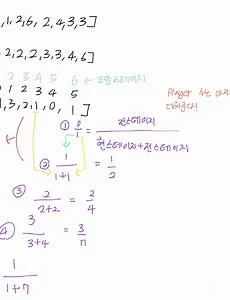 ,1,2,6, 2,4,3,3]
2,2,2,3,3,4,6]
2 3 4 5 6 ←
0 1 2 3 4 5
1,3,2,1,0, 1]
Player 수는
① 0/1 = 전스테이지 / 현스테이지+전스테이지
② 1/1+1 = 1/2
③ 2/2+2 = 2/4
④ 3/3+4 = 3/7
1/1+7